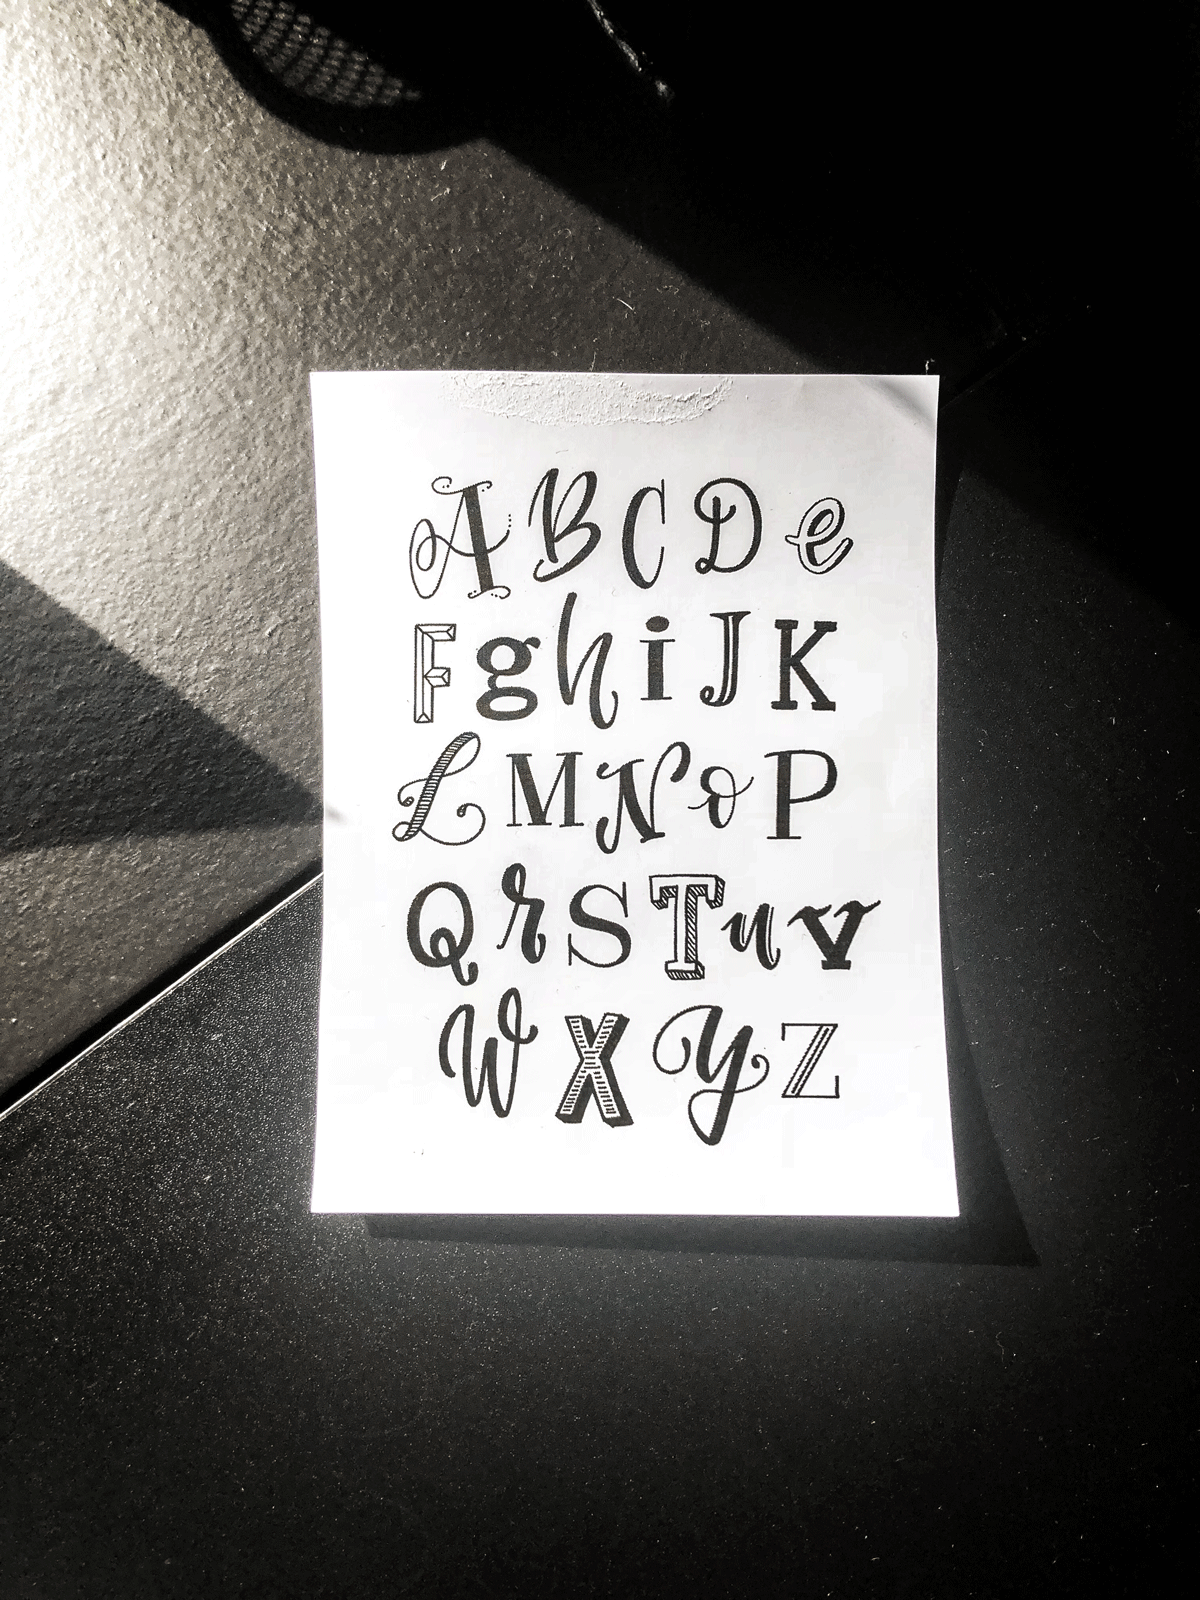 A B C D e
F g h i J K
L M N o P
Q r S T u v
W X y Z